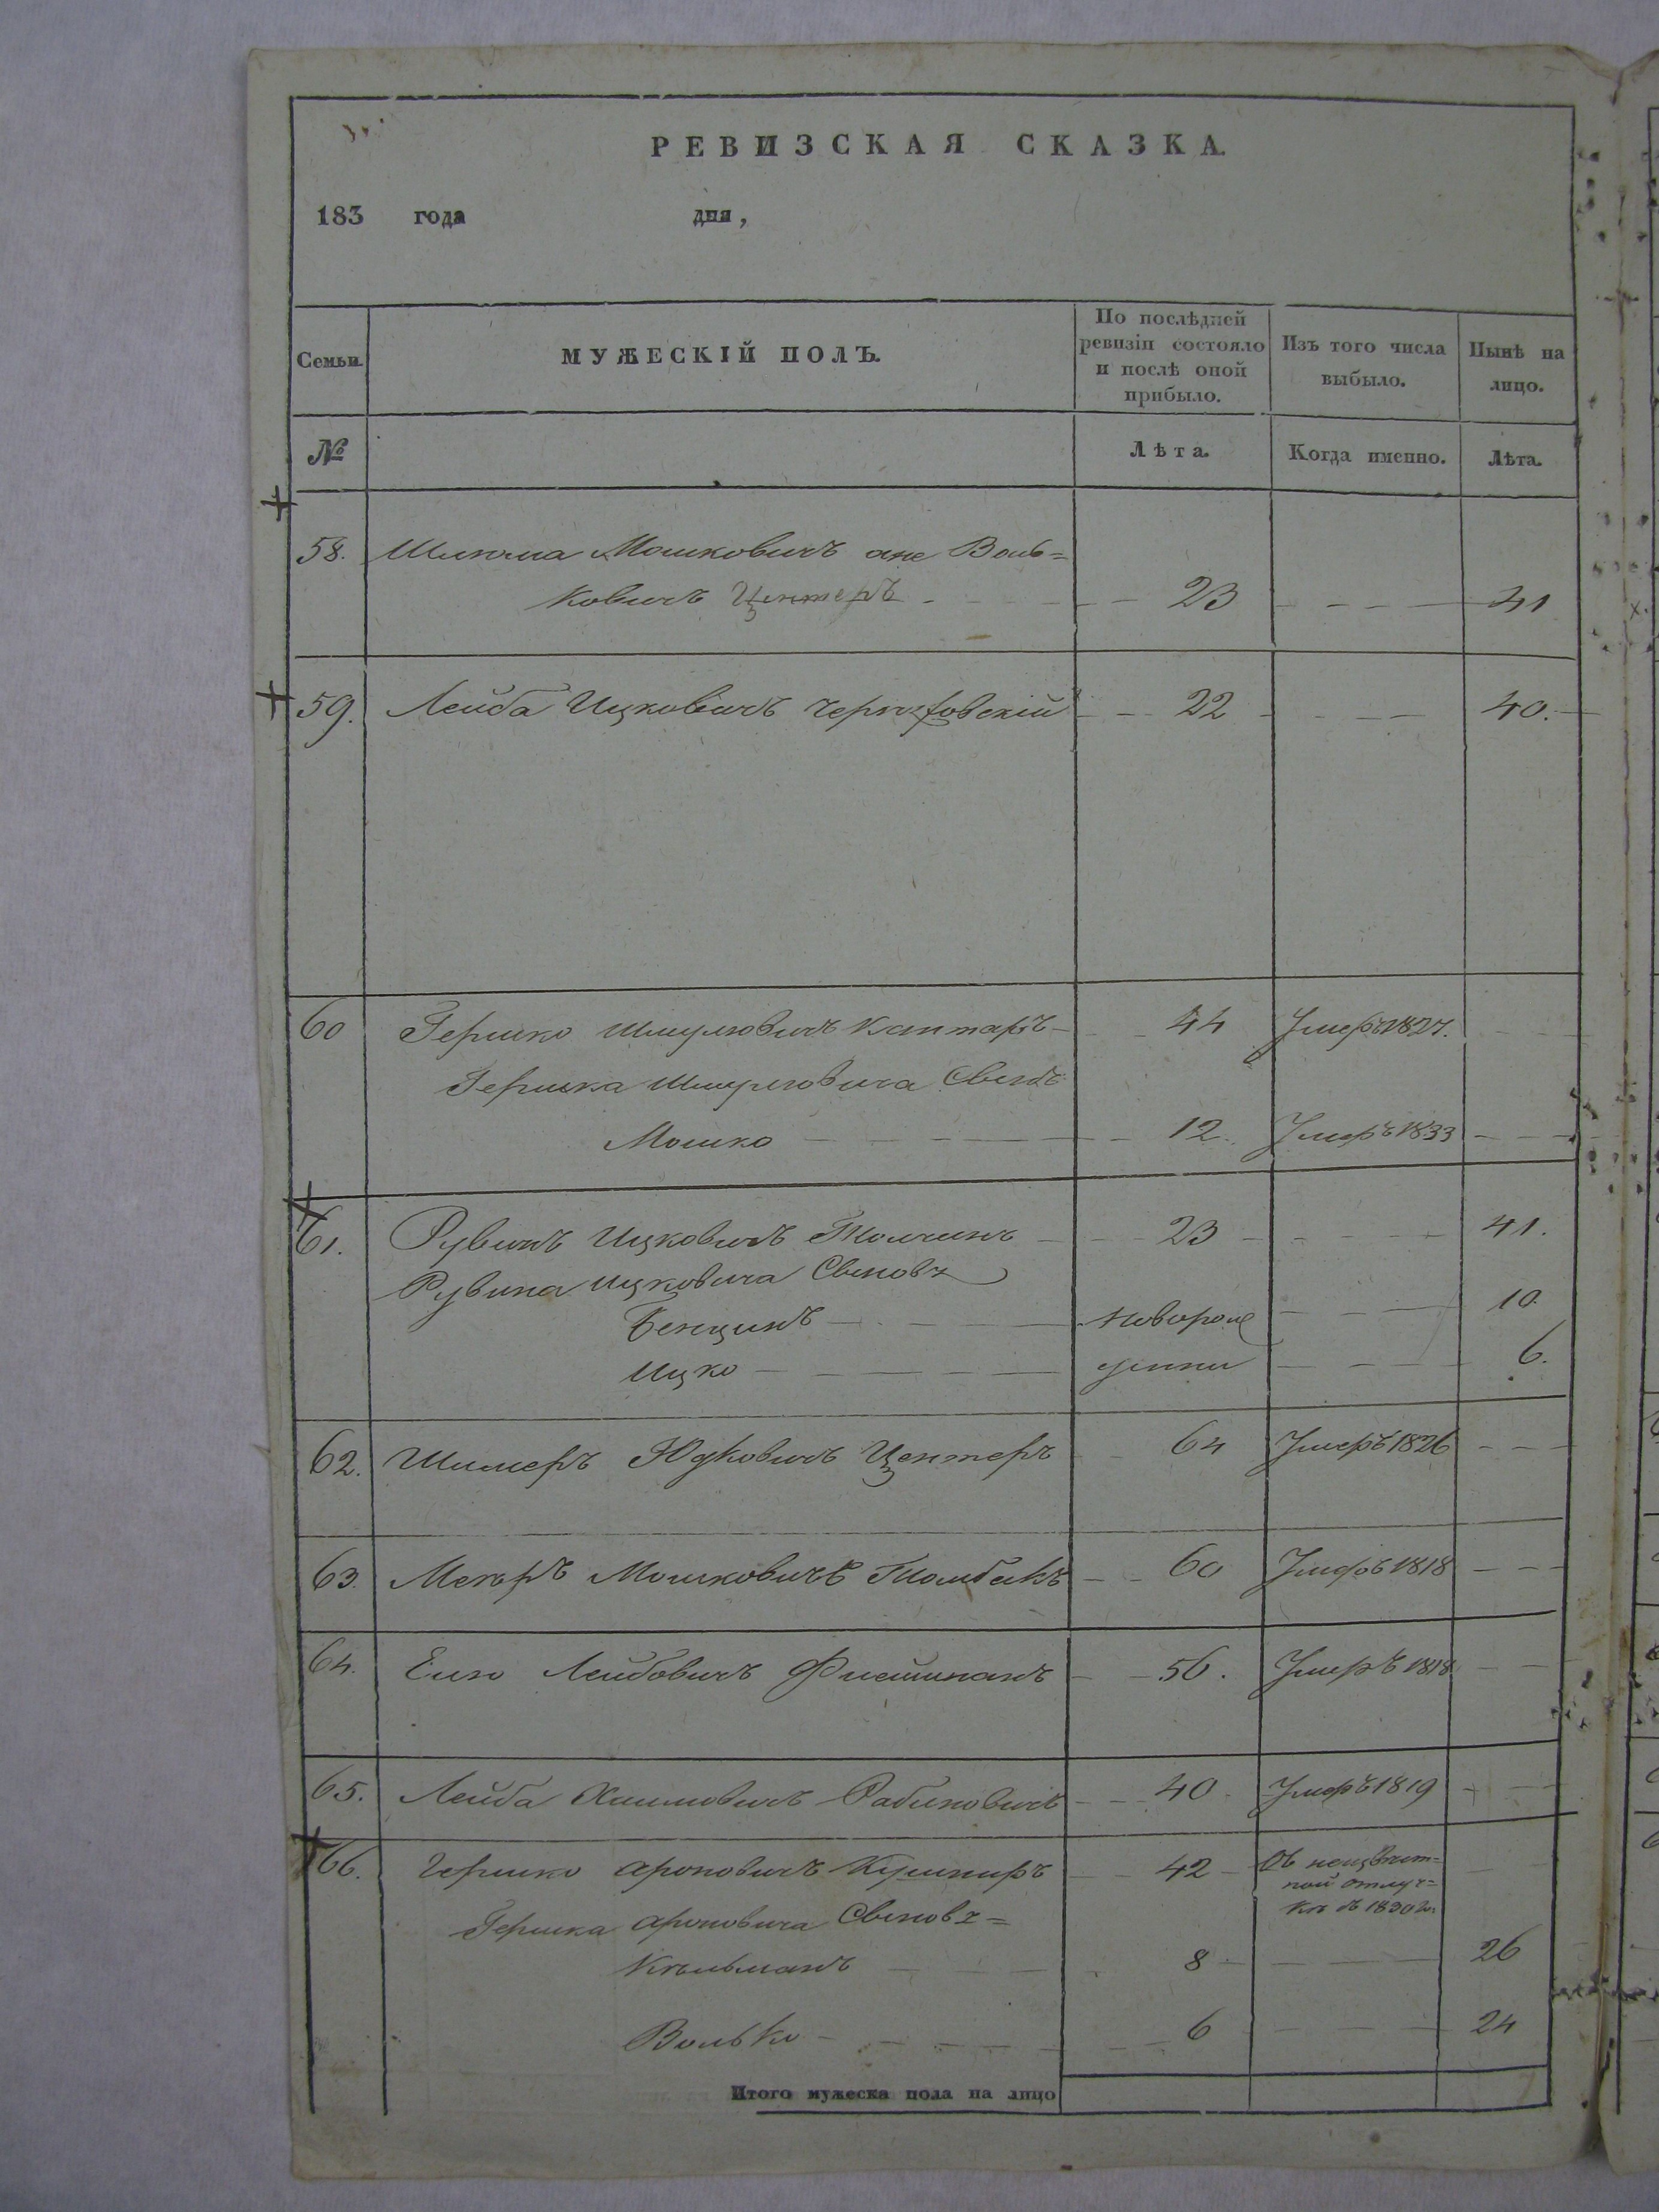 РЕВИЗСКАЯ СКАЗКА.
183 года дня,
Семьи. МУЖЕСКІЙ ПОЛЪ. По послѣдней ревизіи состояло и послѣ оной прибыло. Изъ того числа выбыло. Нынѣ на лицо.
№ Лѣта. Когда именно. Лѣта.
58. Шлюма Мошковичъ оне Воль=
ковичъ Центеръ 23 41
59. Лейба Ицковичъ 22 40.
60 Гершко Шмулювичъ Кантаръ 44 Умеръ 1827.
Гершка Шмулювича Сынъ
Мошко 12. Умеръ 1833
61. Рувинъ Ицковичъ Толчинъ 23 41.
Рувина Ицковича Сыновья
Бенцинъ новорож 10.
Ицко денни 6.
62. Шмеръ Юдковичъ Центеръ 64 Умеръ 1826
63. Меяръ Мошковичъ 60 Умеръ 1818
64. Ειно Лейбовичъ Флейшманъ 56. Умеръ 1818
65. Лейба Хаимовичъ Рабиновичъ 40 Умеръ 1819
66. Гершко Ароновичъ Кушниръ 42 Въ неизвѣст=
ной отлуч=
кѣ съ 1830 г.
Гершка Ароновича Сыновья=
Кельманъ 8 26
Волько 6 24
Итого мужеска пола на лицо